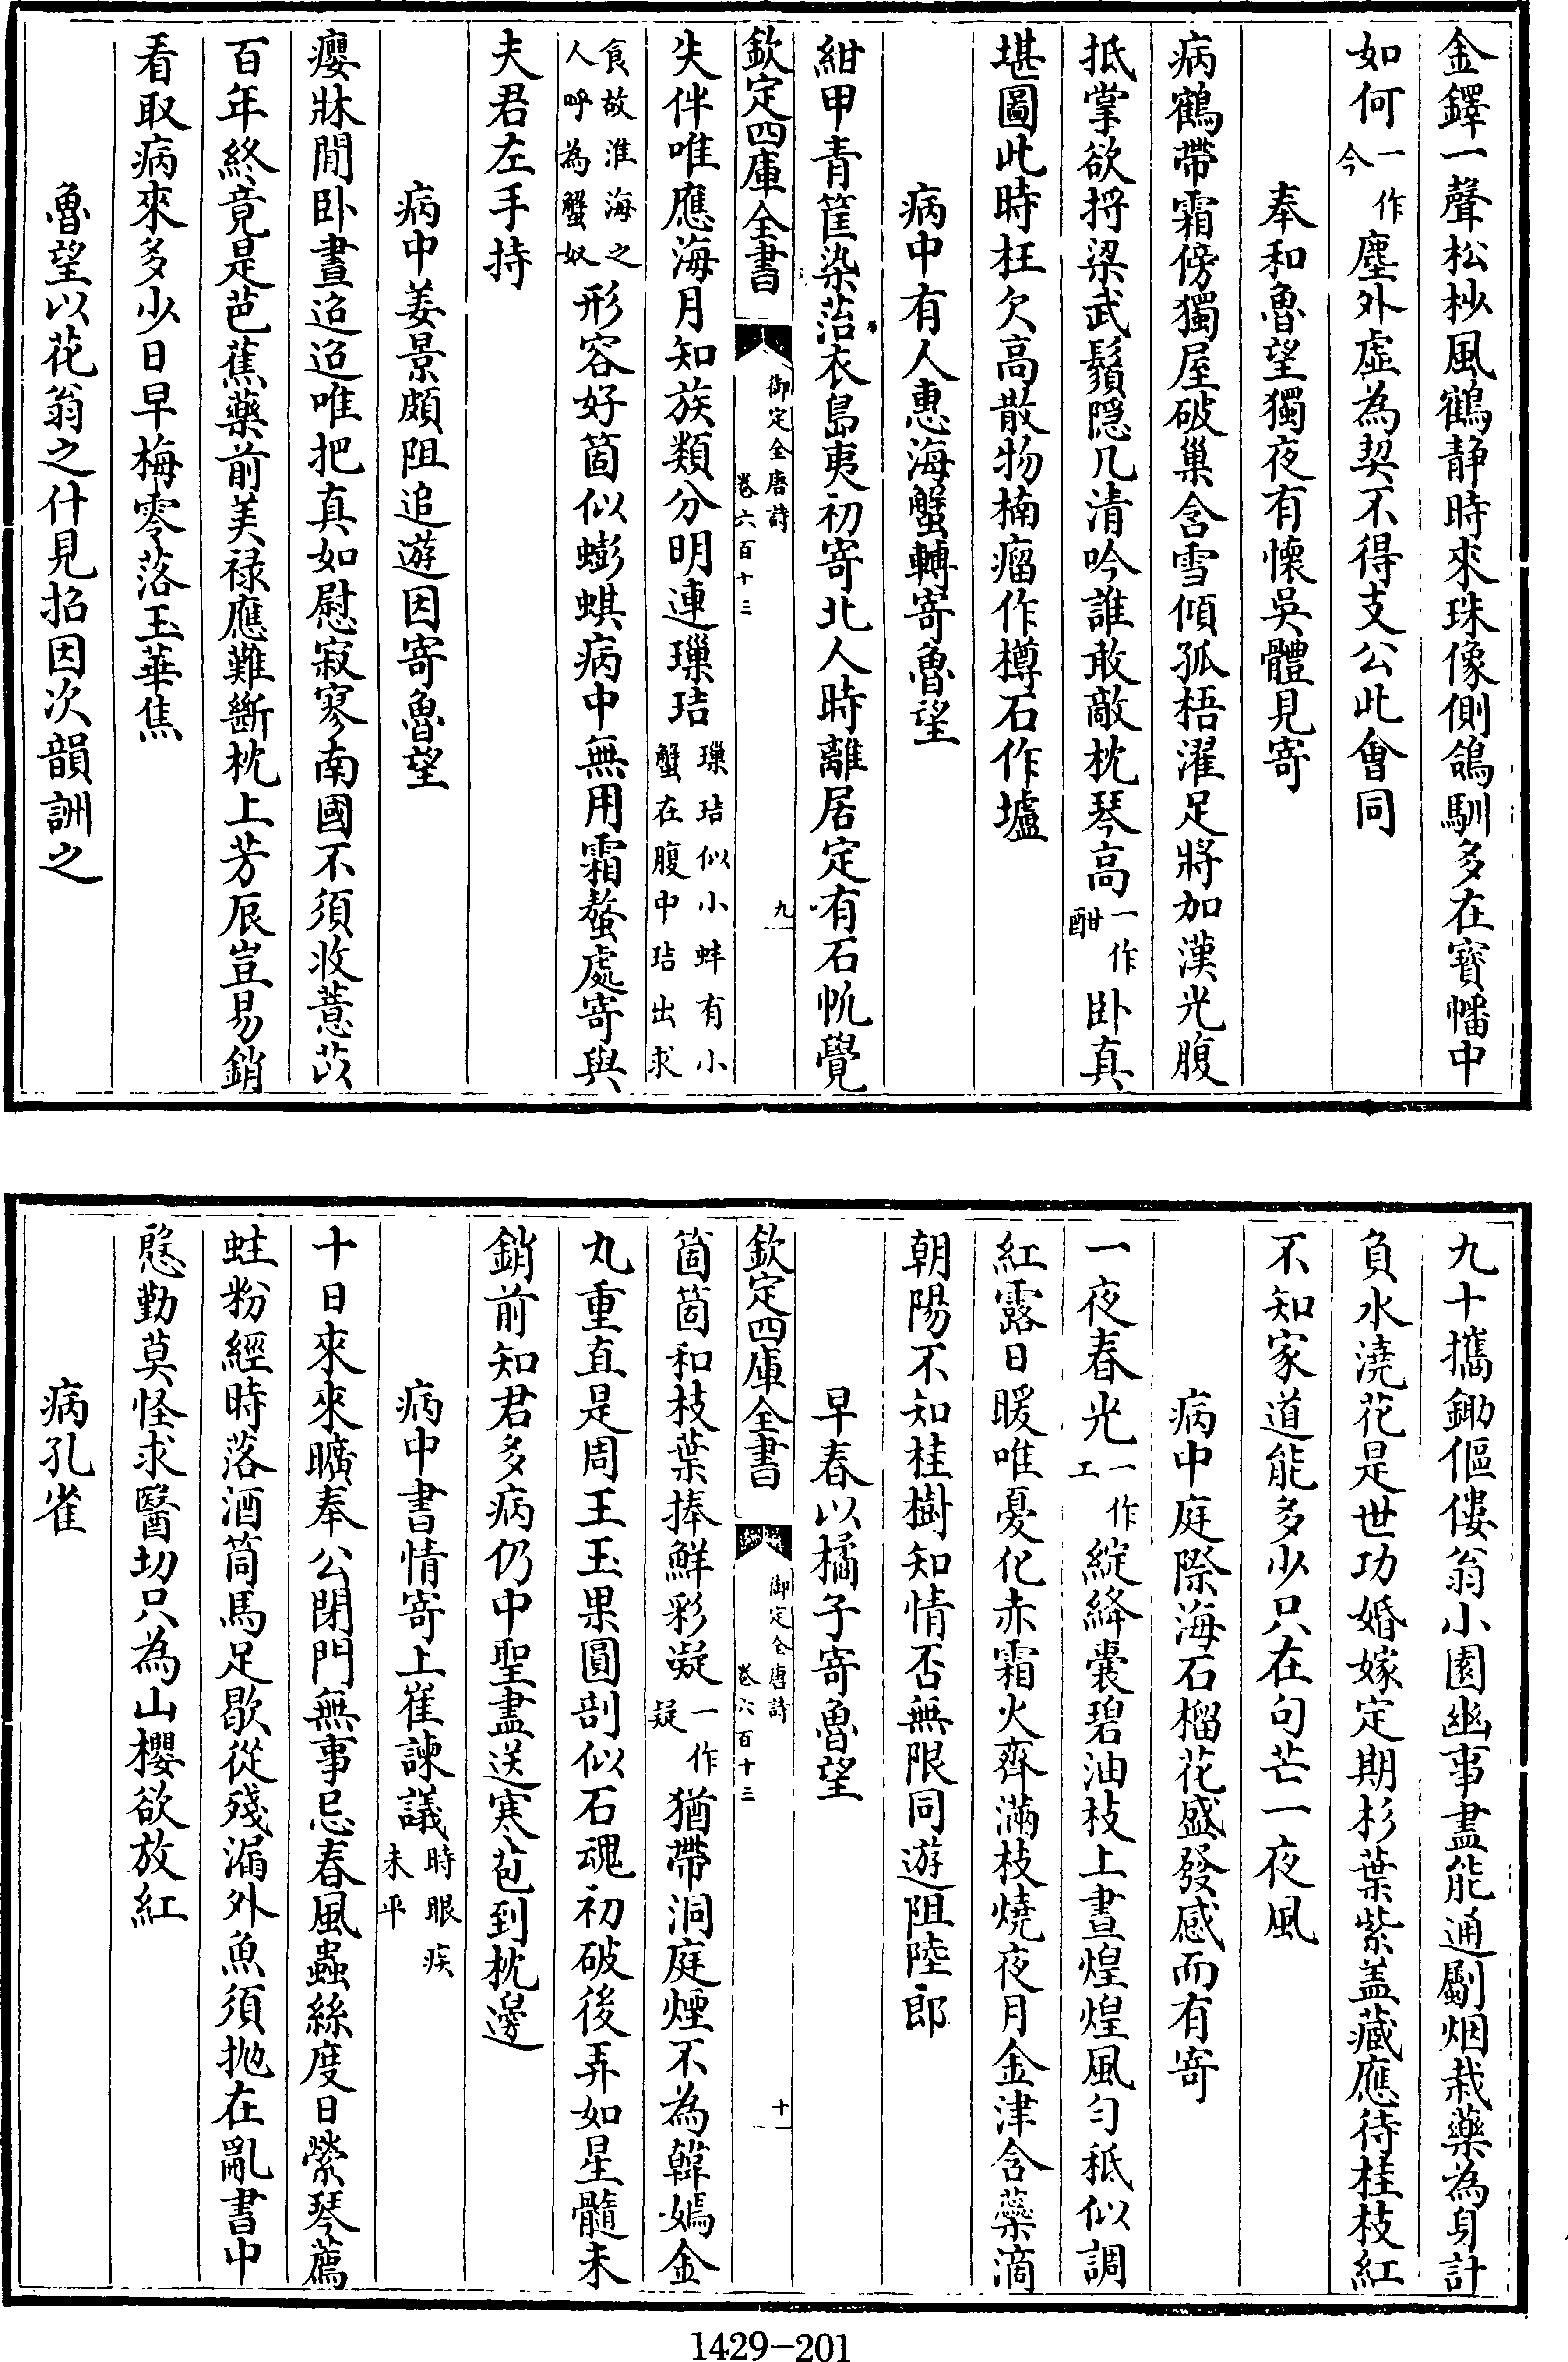 金鐸一聲松杪風鶴静時來珠像側鴿馴多在寳幡中
如何一作今塵外虛為契不得支公此會同
奉和魯望獨夜有懷吳體見寄
病鶴帶霜傍獨屋破巢含雪傾孤梧濯足將加漢光腹
抵掌欲捋梁武鬚隠几清吟誰敢敵枕琴高一作酣卧真
堪圖此時枉欠高散物楠瘤作樽石作壚
病中有人惠海蟹轉寄魯望
紺甲青筐染菭衣島夷初寄北人時離居定有石㠶覺
欽定四庫全書
御定全唐詩
卷六百十三
九
失伴唯應海月知族類分明連璅琂璅琂似小蚌有小蟹在腹中琂出求
食故淮海之人呼為蟹奴形容好箇似蟛蜞病中無用霜螯處寄與
夫君左手持
病中姜景頗阻追遊因寄魯望
癭牀閒卧晝迢迢唯把真如慰寂寥南國不須收薏苡
百年終竟是芭蕉藥前美禄應難斷枕上芳辰豈易銷
看取病來多少日早梅零落玉華焦
魯望以花翁之什見招因次韻詶之
九十攜鋤傴僂翁小園幽事盡能通斸烟栽藥為身計
負水澆花是世功婚嫁定期杉葉紫盖藏應待桂枝紅
不知家道能多少只在句芒一夜風
病中庭際海石榴花盛發感而有寄
一夜春光一作工綻絳囊碧油枝上晝煌煌風勻秪似調
紅露日暖唯憂化赤霜火齊滿枝燒夜月金津含蘂滴
朝陽不知桂樹知情否無限同遊阻陸郎
早春以橘子寄魯望
欽定四庫全書
御定全唐詩
卷六百十三
十
箇箇和枝葉捧鮮彩凝一作疑猶帶洞庭煙不為韓嫣金
丸重直是周王玉果圓剖似石魂初破後弄如星髓未
銷前知君多病仍中聖盡送寒苞到枕邊
病中書情寄上崔諫議時眼疾未平
十日來來曠奉公閉門無事忌春風蟲絲度日縈琴薦
蛀粉經時落酒筒馬足歇從殘漏外魚須抛在亂書中
慇勤莫怪求醫切只為山櫻欲放紅
病孔雀
1429-201